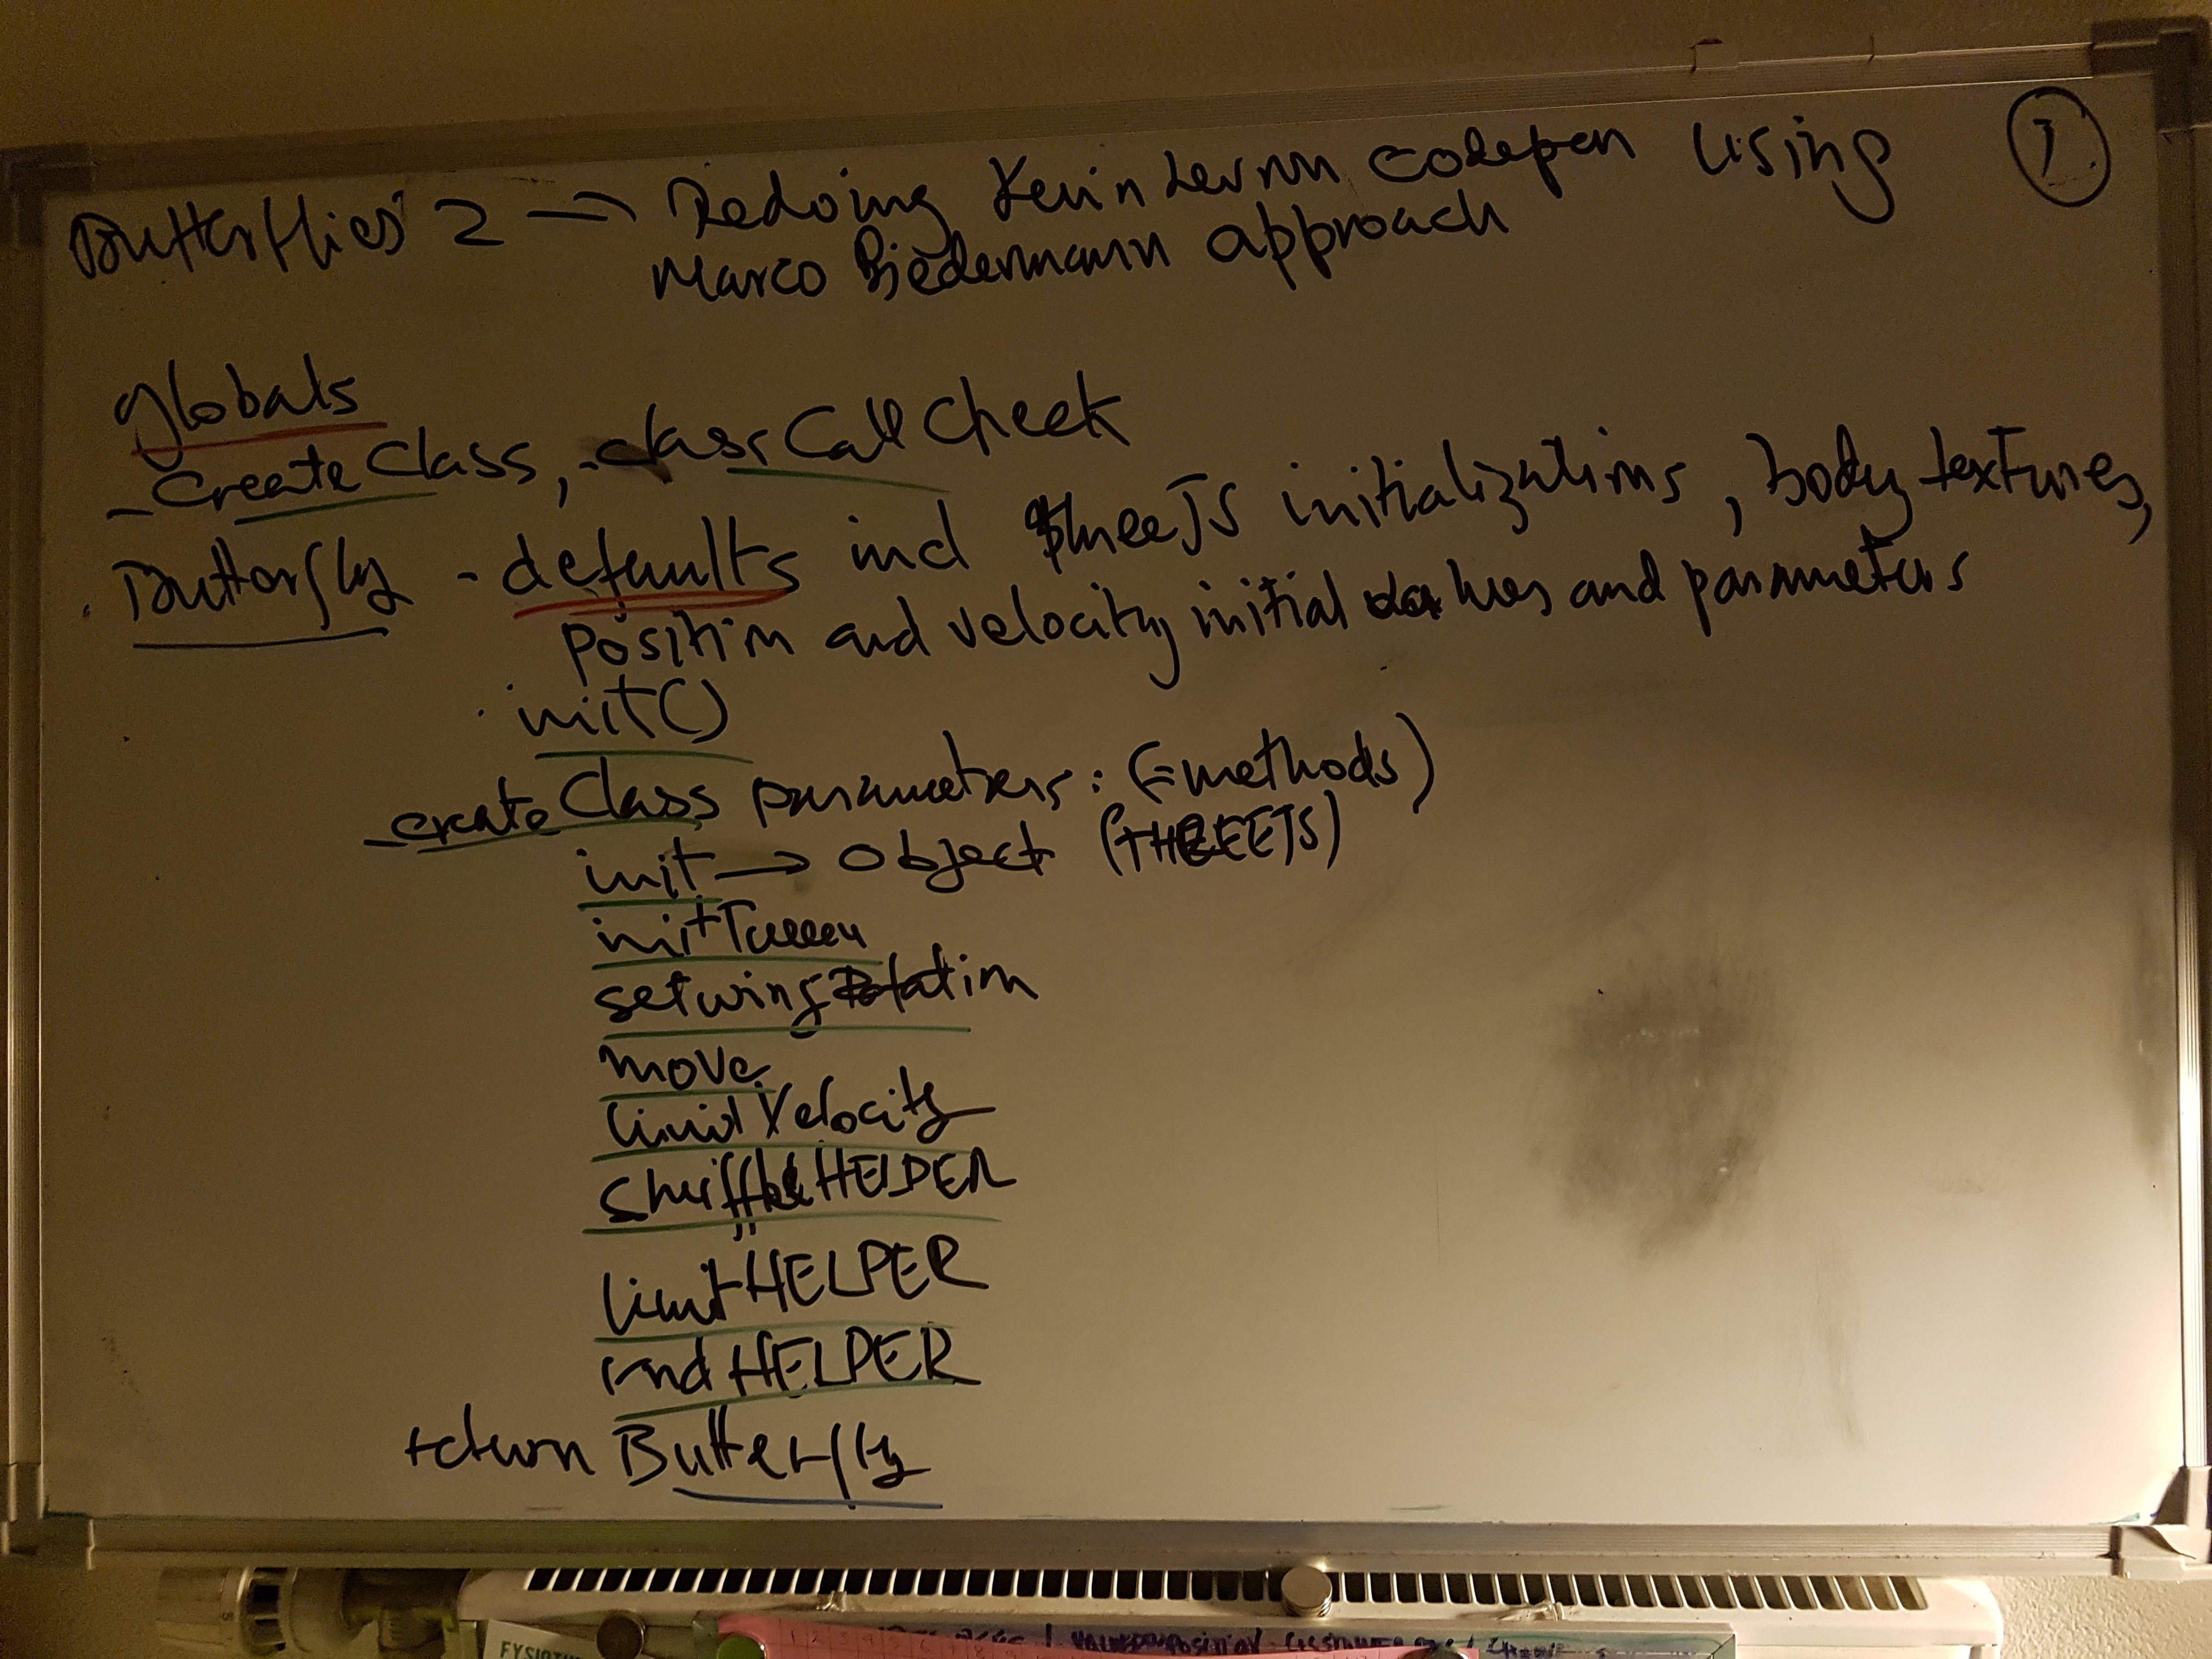 Butterflies 2 → Redoing Kevin Levron codepen using
1.
Marco Biedermann approach
globals
_createClass, _classCallCheck
Butterfly - defaults incl threeJS initializations, body textures,
position and velocity initial values and parameters
init()
_createClass parameters: (=methods)
init → object (THREEJS)
initTween
setwingRotation
move
limitVelocity
shuffleHELPER
limitHELPER
rndHELPER
return Butterfly
FYSIOTH